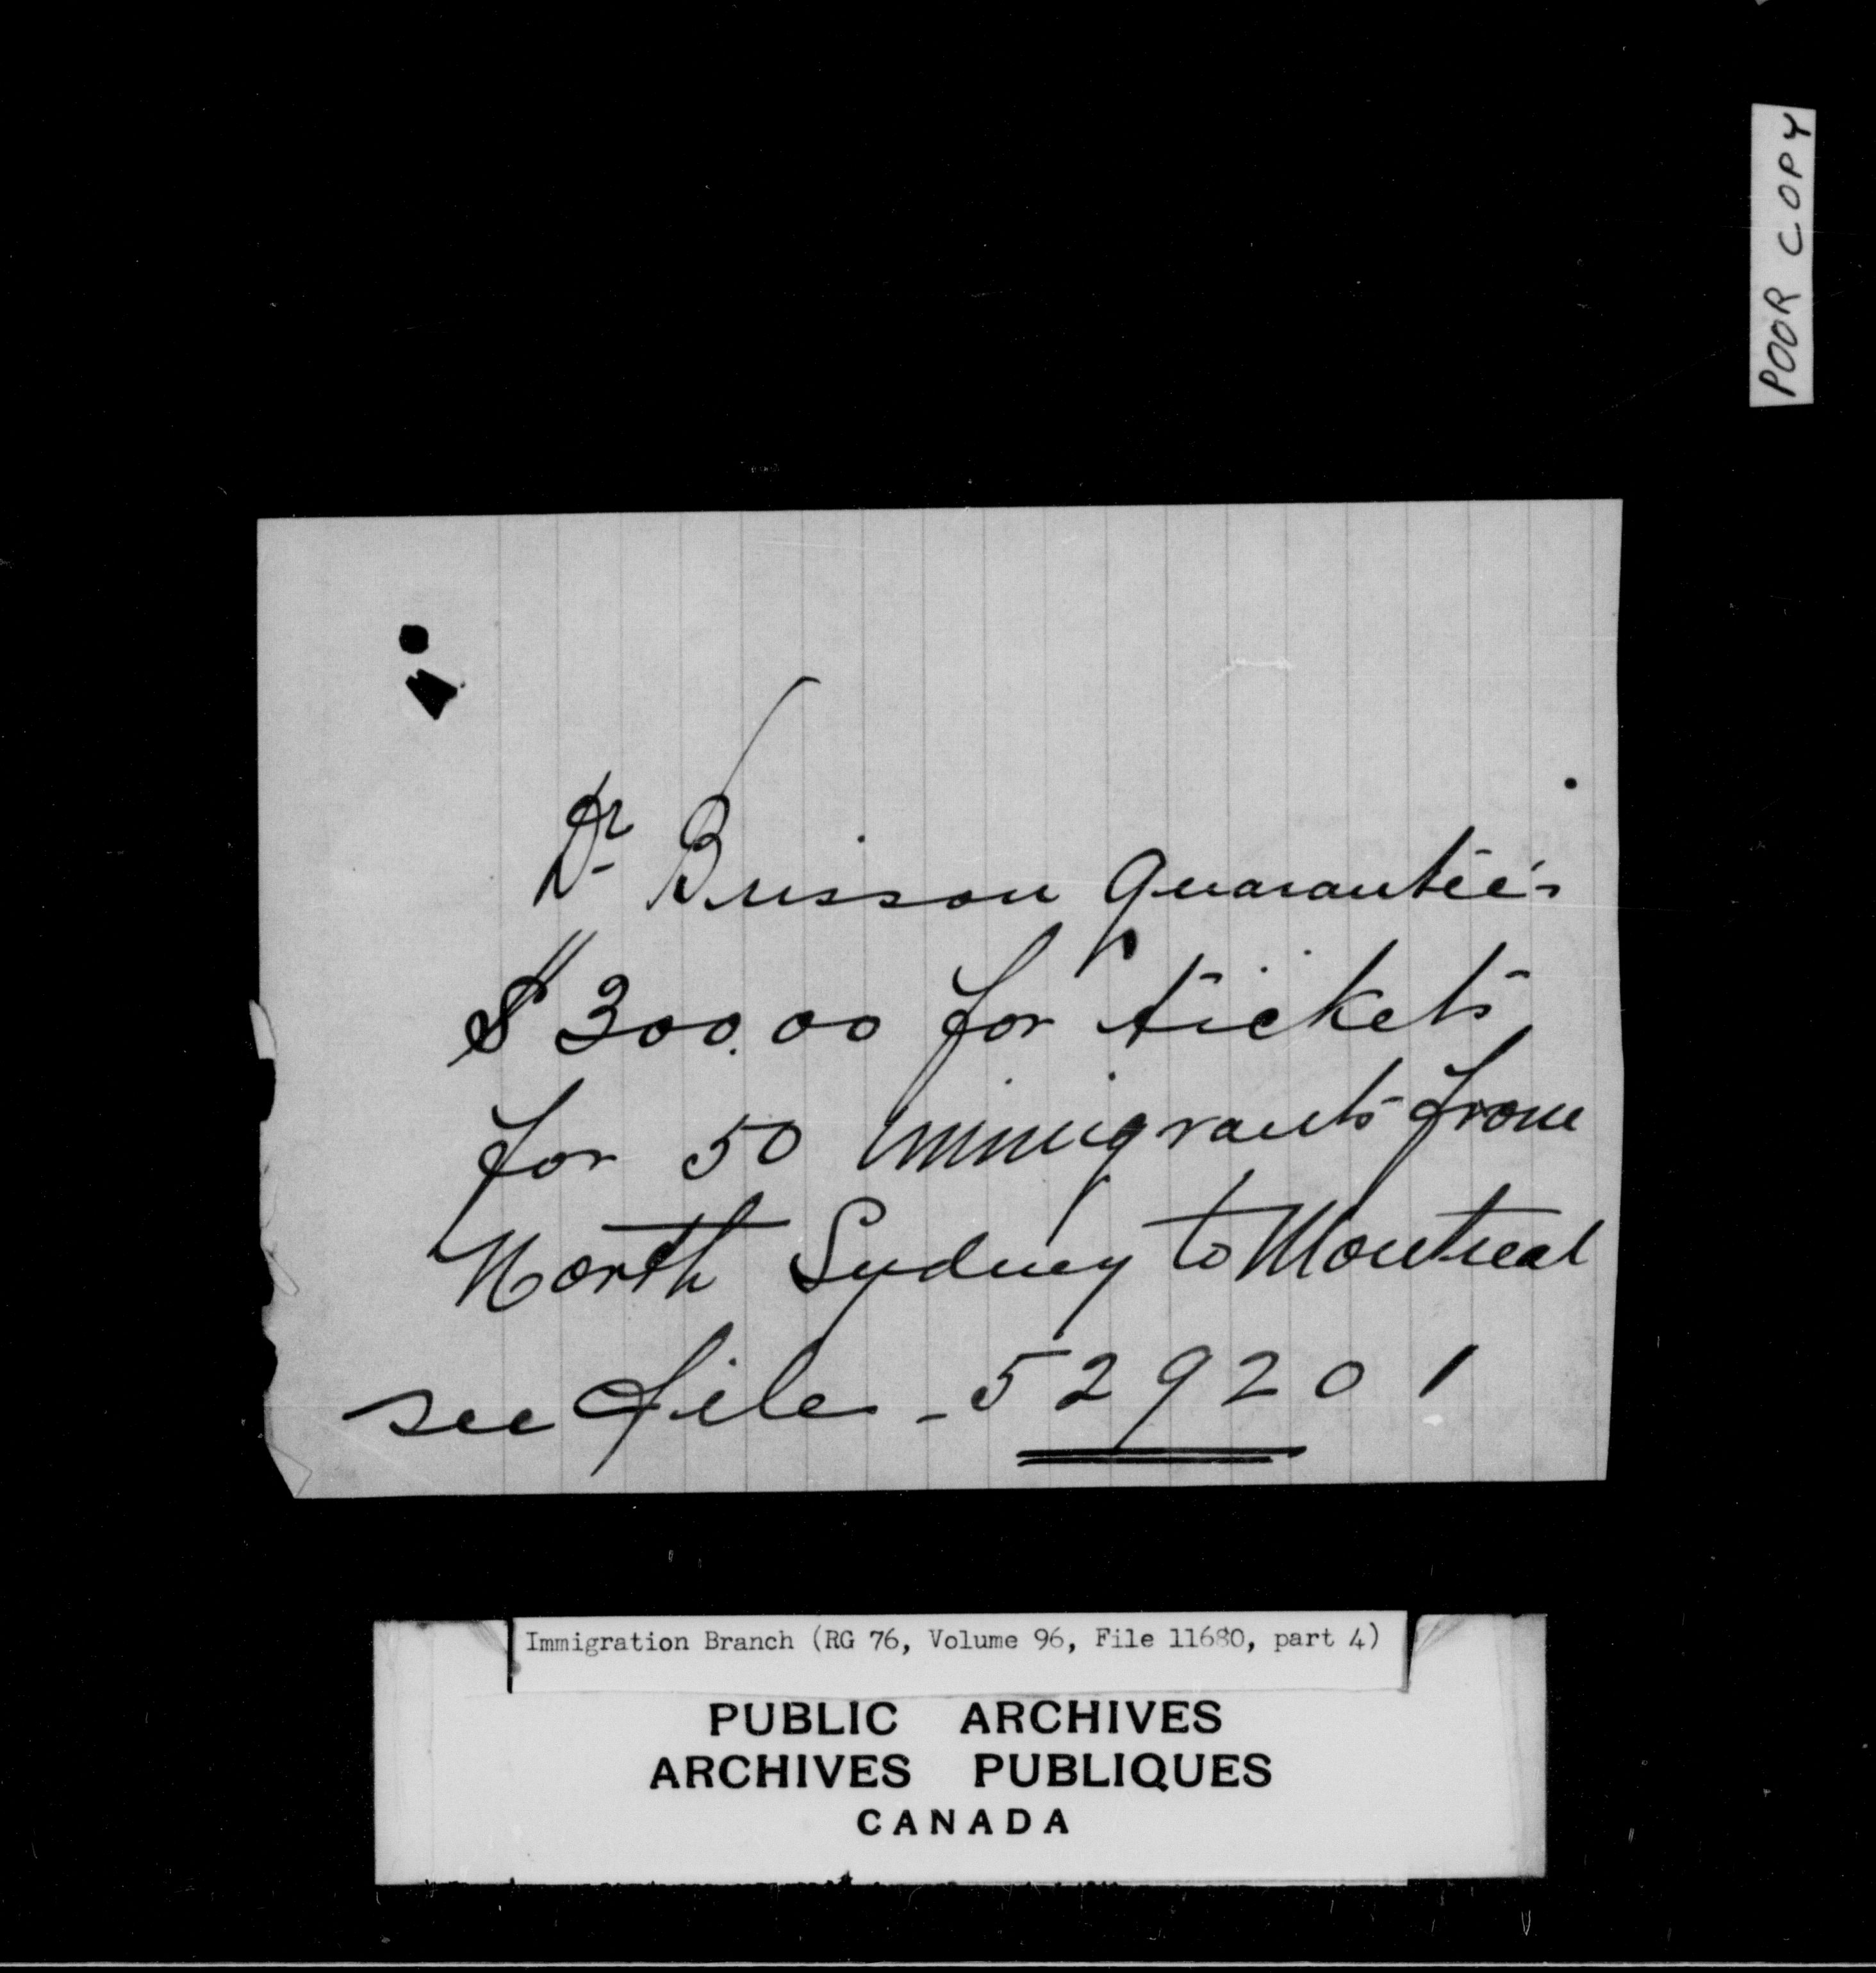 POOR COPY
Dr Brisson guarantee's
$300.00 for tickets
for 50 immigrants from
North Sydney to Montreal
see file - 529201
Immigration Branch (RG 76, Volume 96, File 11680, part 4)
PUBLIC ARCHIVES
ARCHIVES PUBLIQUES
CANADA